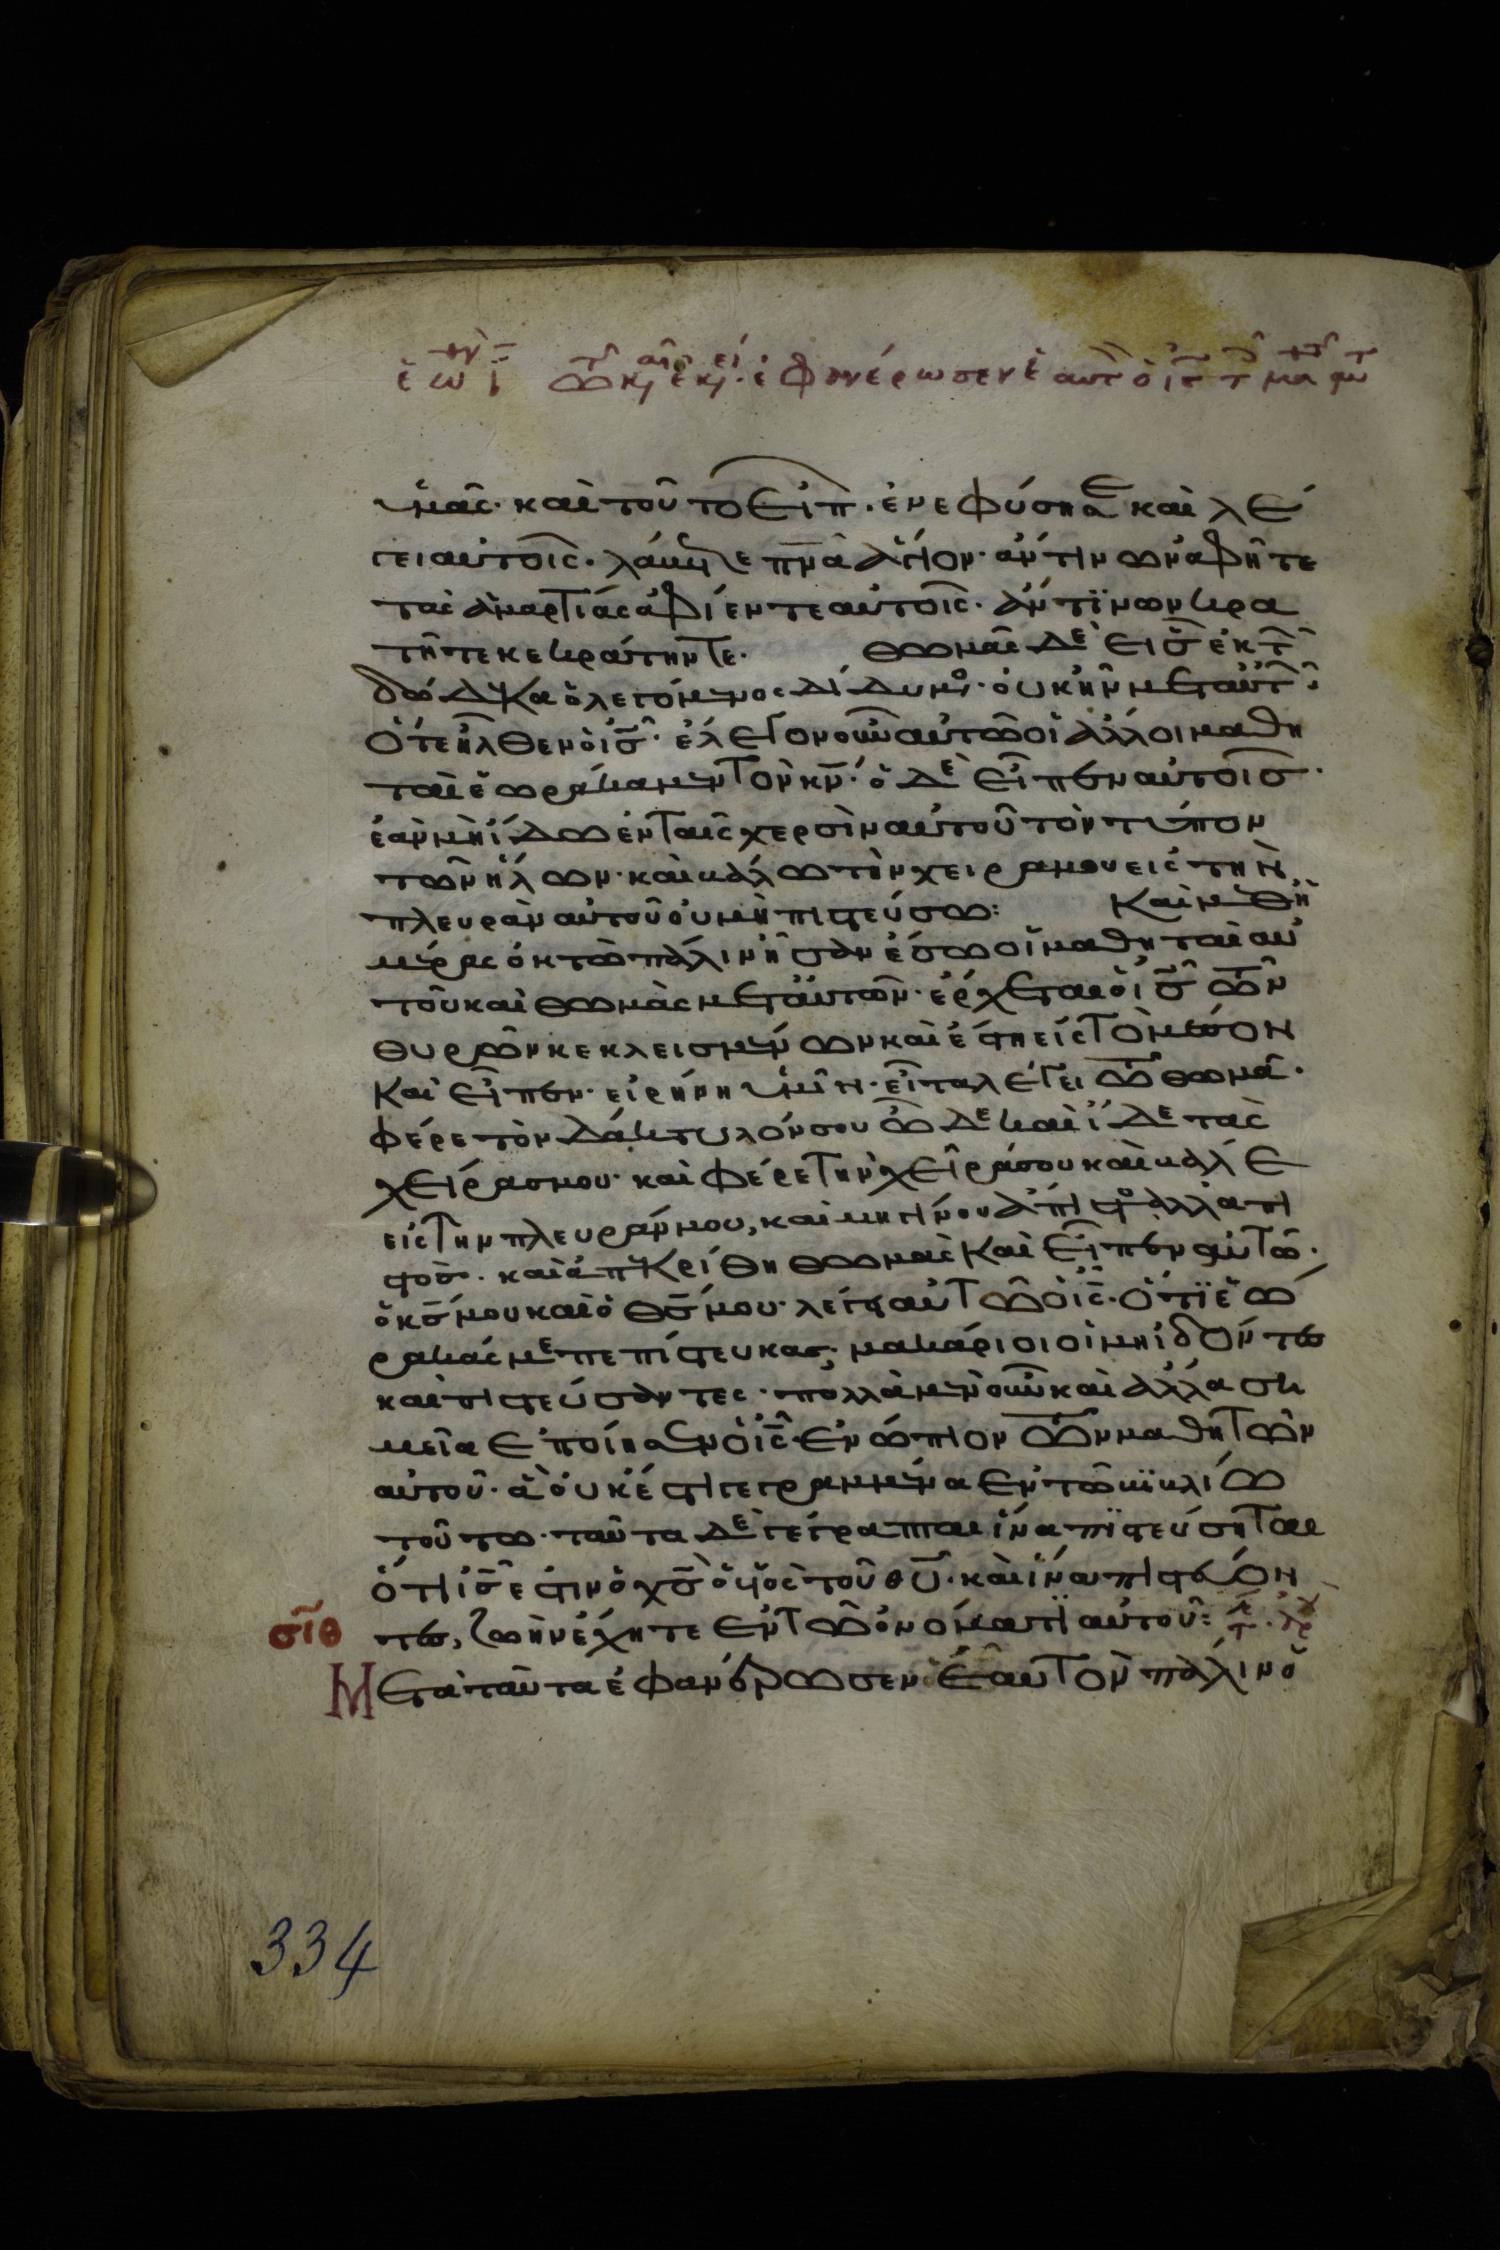 ὑμᾶς· καὶ τοῦτο εἰπ· ἐνεφύσησε καὶ λέ
γει αὐτοῖς· λάβετε πνᾶ ἅγιον· ἄν τινων ἀφῆτε
τὰς ἁμαρτίας ἀφίενται αὐτοῖς· ἄν τινων κρα
τῆτε κεκράτηντε· θωμᾶς δὲ εἷσ ἐκ τ
δώδεκα ὁ λεγόμενος δίδυμος· οὐκ ἦν μεταὐτ
ὅτε ἦλθεν ὁ ισ· ἔλεγον οὖν αὐτῶ οἱ ἄλλοι μαθη
ταὶ ἑωράκαμεν τὸν κν· ὁ δὲ εἶπεν αὐτοῖσ·
ἐὰν μὴ ἴδω ἐν ταῖς χερσὶν αὐτοῦ τὸν τύπον
τῶν ἥλων· καὶ βάλω τὴν χεῖρα μου εἰς τὴν
πλευρὰν αὐτοῦ οὐ μὴ πιστεύσω: Καὶ μεθη
μέρας ὀκτὼ πάλιν ἦσαν ἔσω οἱ μαθηταὶ αὐ
τοῦ καὶ θωμὰς μεταὐτῶν· ἔρχεται ὁ ισ τῶν
θυρῶν κεκλεισμένων καὶ ἔστη εἰς τὸ μέσον
Καὶ εἶπεν· εἰρήνη ὑμῖν· εἶτα λέγει τῶ θωμᾶ·
φέρε τὸν δάκτυλόν σου ὧδε καὶ ἴδε τὰς
χεῖράς μου· καὶ φέρε τὴν χεῖρά σου καὶ βάλε
εἰς τὴν πλευράν μου, καὶ μὴ γίνου ἄπιστος ἀλλὰ πι
στὸσ· καὶ ἀπεκρίθη θωμᾶς Καὶ εἶπεν αὐτῶ·
ὁ κσ μου καὶ ὁ θσ μου· λέγει αὐτῶ ὁ ις· ὅτι ἑώ
ρακάς με πεπίστευκας, μακάριοι οἱ μὴ ἰδόντες
καὶ πιστεύσαντες· πολλὰ μὲν οὖν καὶ ἄλλα ση
μεῖα ἐποίησεν ὁ ις ἐνώπιον τῶν μαθητῶν
αὐτοῦ· ἃ οὐκ ἔστι γεγραμμένα ἐν τῶ βιβλίω
τούτω· ταῦτα δὲ γέγραπται ἵνα πιστεύσηται
ὅτι ισ ἐστιν ὁ χσ ὁ υἱὸς τοῦ θυ· καὶ ἵνα πιστεύον
τες, ζωὴν ἔχητε ἐν τῶ ὀνόματι αὐτοῦ:
σιθ
Μετὰ ταῦτα ἐφανέρωσεν ἑαυτὸν πάλιν ὁ
334